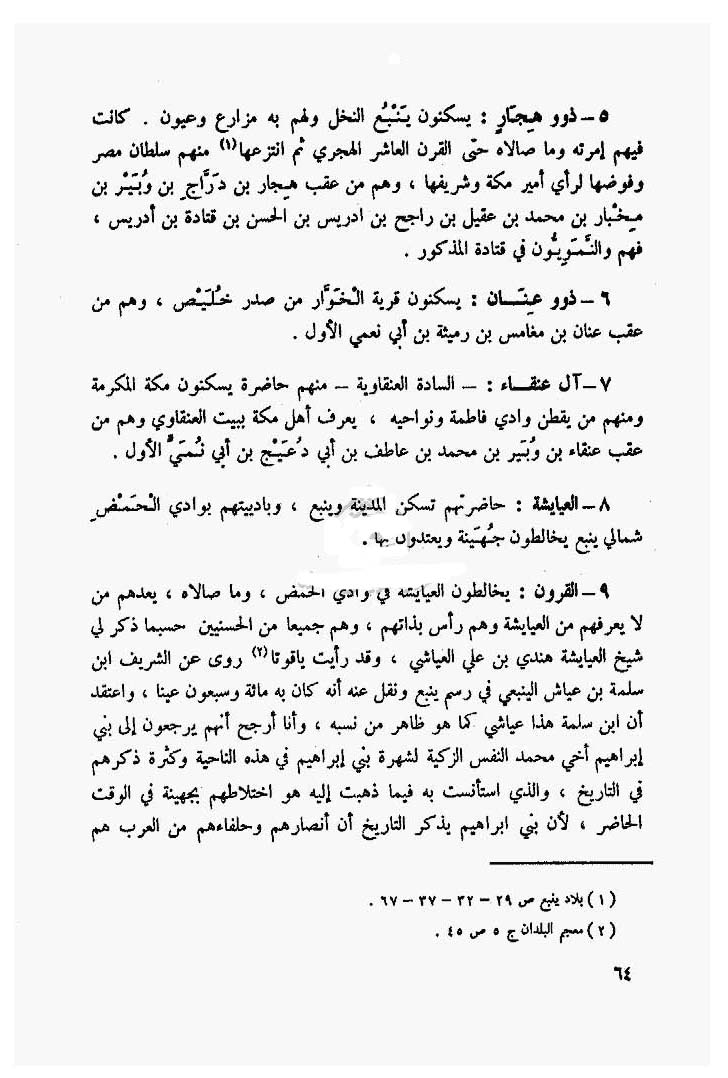 ٥ – ذوو هِجَارٍ : يسكنون يَنْبُع النخل ولهم به مزارع وعيون . كانت
فيهم إمرته وما صالاه حتّى القرن العاشر الهجري ثم انتزعها(١) منهم سلطان مصر
وفوضها لرأي أمير مكة وشريفها ، وهم من عقب هِجار بن دَرَّاجٍ بن وُبَيْر بن
مِخْبار بن محمد بن عقيل بن راجح بن ادريس بن الحسن بن قتادة بن أدريس ،
فهم والنَّمَوِيُّون في قتادة المذكور .
٦ – ذوو عِنَان : يسكنون قرية الخَوَّار من صدر خُلَيْص ، وهم من
عقب عنان بن مغامس بن رميثة بن أبي نعمي الأول .
٧ – آل عنقاء : – السادة العنقاوية – منهم حاضرة يسكنون مكة المكرمة
ومنهم من يقطن وادي فاطمة ونواحيه ، يعرف أهل مكة ببيت العنقاوي وهم من
عقب عنقاء بن وُبَير بن محمد بن عاطف بن أبي دُعَيْج بن أبي نُمَيٍّ الأول .
٨ – العيايشة : حاضرتهم تسكن المدينة وينبع ، وباديتهم بوادي الْحَمْضِ
شمالي ينبع يخالطون جُهَينة ويعتدون بها .
٩ – القرون : يخالطون العيايشة في وادي الحمض ، وما صالاه ، يعدهم من
لا يعرفهم من العيايشة وهم رأس بذاتهم ، وهم جميعا من الحسنيين حسبما ذكر لي
شيخ العيايشة هندي بن علي العياشي ، وقد رأيت ياقوتا(٢) روى عن الشريف ابن
سلمة بن عياش الينبعي في رسم ينبع ونقل عنه أنه كان به مائة وسبعون عينا ، واعتقد
أن ابن سلمة هذا عياشي كما هو ظاهر من نسبه ، وأنا أرجح أنهم يرجعون إلى بني
إبراهيم أخي محمد النفس الزكية لشهرة بني إبراهيم في هذه الناحية وكثرة ذكرهم
في التاريخ ، والذي استأنست به فيما ذهبت إليه هو اختلاطهم بجهينة في الوقت
الحاضر ، لأن بني ابراهيم يذكر التاريخ أن أنصارهم وحلفاءهم من العرب هم
(١) بلاد ينبع ص ٢٩ – ٣٢ – ٣٧ – ٦٧ .
(٢) معجم البلدان ج ٥ ص ٤٥ .
٦٤